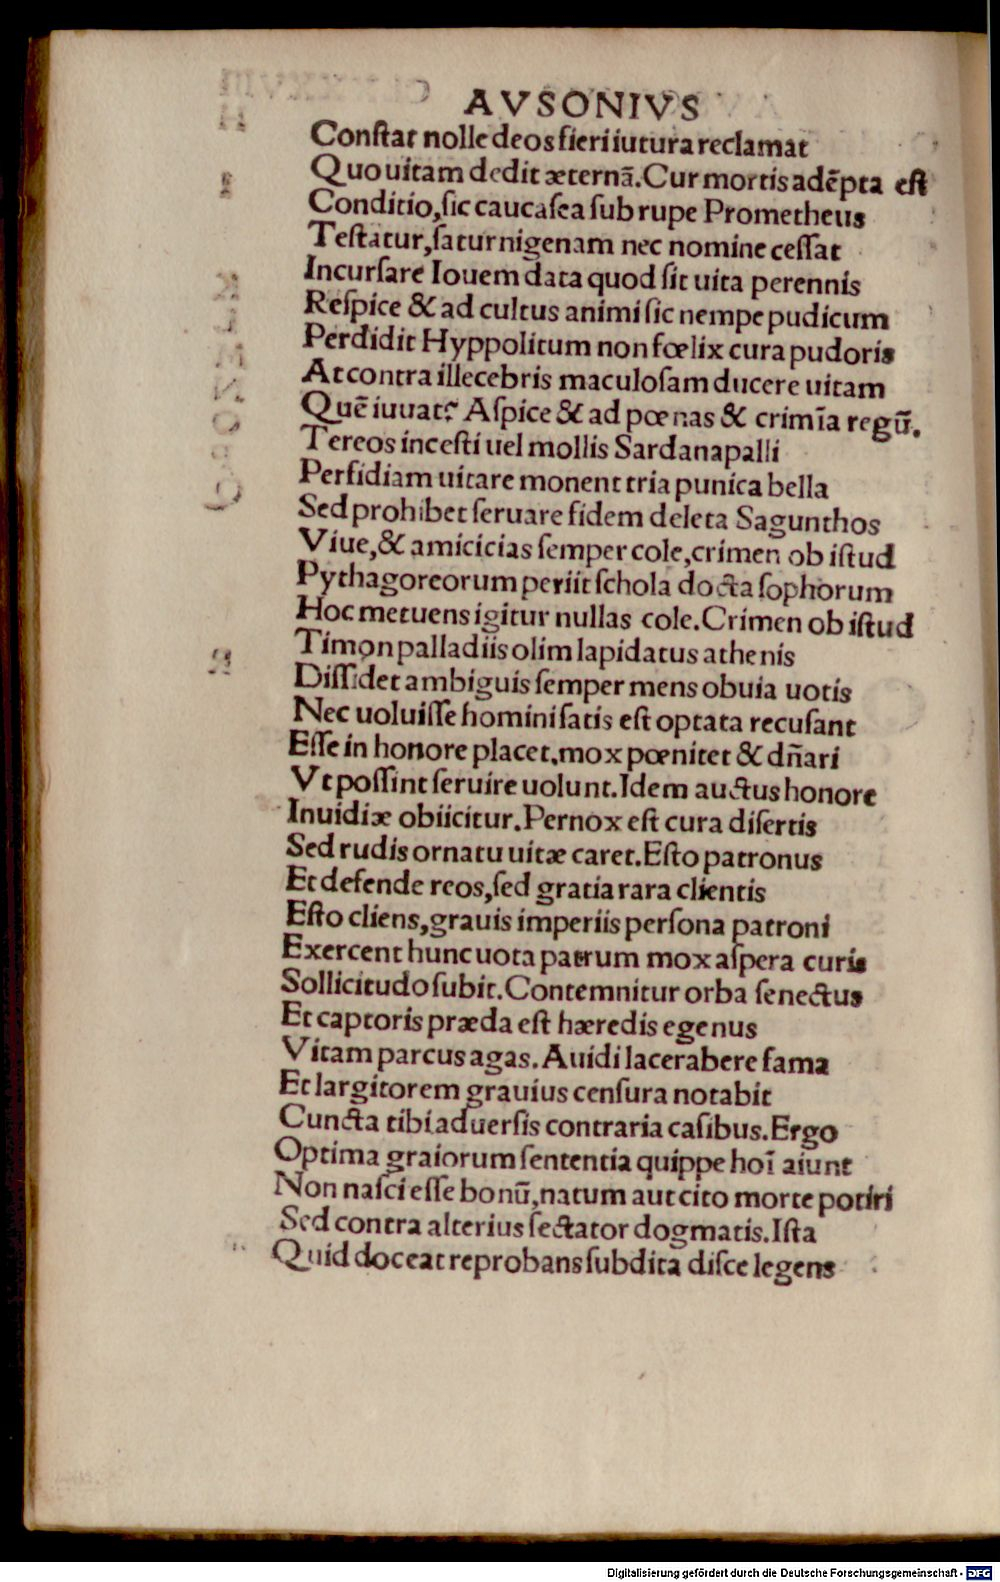 AVSONIVS
Conſtat nolle deos fieri iutura reclamat
Quo uitam dedit æternã. Cur mortis adẽpta eſt
Conditio, ſic caucaſea ſub rupe Prometheus
Teſtatur, ſaturnigenam nec nomine ceſſat
Incurſare Iouem data quod ſit uita perennis
Reſpice & ad cultus animi ſic nempe pudicum
Perdidit Hyppolitum non fœlix cura pudoris
At contra illecebris maculoſam ducere uitam
Quẽ iuuat? Aſpice & ad pœnas & crimĩa regũ.
Tereos inceſti uel mollis Sardanapalli
Perfidiam uitare monent tria punica bella
Sed prohibet ſeruare fidem deleta Sagunthos
Viue, & amicicias ſemper cole, crimen ob iſtud
Pythagoreorum periit ſchola docta ſophorum
Hoc metuens igitur nullas cole. Crimen ob iſtud
Timon palladiis olim lapidatus athenis
Diſſidet ambiguis ſemper mens obuia uotis
Nec uoluiſſe homini ſatis eſt optata recuſant
Eſſe in honore placet, mox pœnitet & dñari
Vt poſſint ſeruire uolunt. Idem auctus honore
Inuidiæ obiicitur. Pernox eſt cura diſertis
Sed rudis ornatu uitæ caret. Eſto patronus
Et defende reos, ſed gratia rara clientis
Eſto cliens, grauis imperiis perſona patroni
Exercent hunc uota patrum mox aſpera curis
Sollicitudo ſubit. Contemnitur orba ſenectus
Et captoris præda eſt hæredis egenus
Vitam parcus agas. Auidi lacerabere fama
Et largitorem grauius cenſura notabit
Cuncta tibi aduerſis contraria caſibus. Ergo
Optima graiorum ſententia quippe hoĩ aiunt
Non naſci eſſe bonũ, natum aut cito morte potiri
Sed contra alterius ſectator dogmatis. Iſta
Quid doceat reprobans ſubdita diſce legens
Digitalisierung gefördert durch die Deutsche Forschungsgemeinschaft - DFG